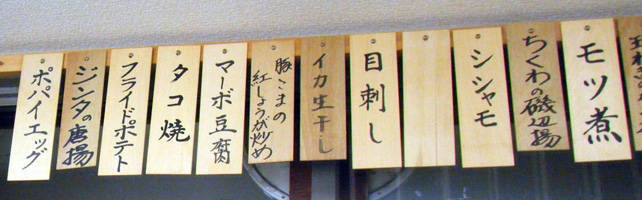 モツ煮
ちくわの磯辺揚
シシャモ
目刺し
イカ生干し
豚こまの
紅しょうが炒め
マーボ豆腐
タコ焼
フライドポテト
ジンタの唐揚
ポパイエッグ